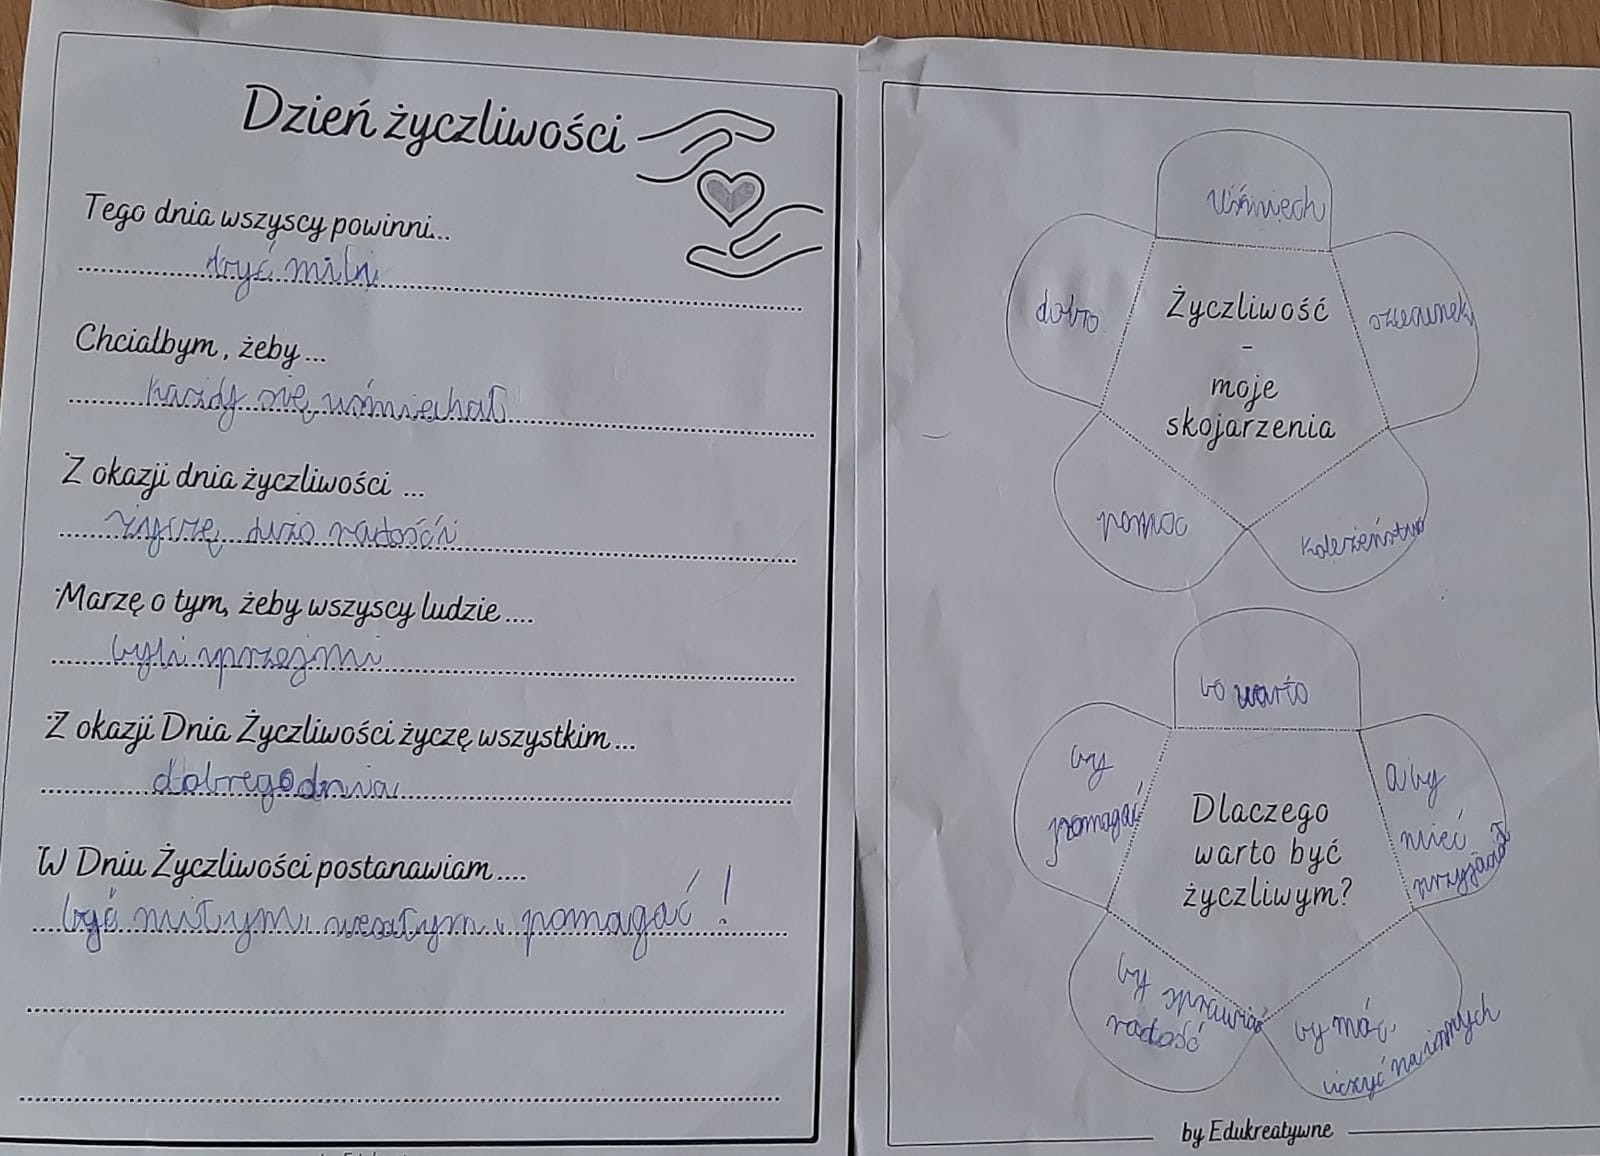 Dzień życzliwości
Tego dnia wszyscy powinni...
być mili
Chciałbym, żeby...
każdy się uśmiechał
Z okazji dnia życzliwości ...
życzę dużo radości
Marzę o tym, żeby wszyscy ludzie....
byli uprzejmi
Z okazji Dnia Życzliwości życzę wszystkim...
dobrego dnia
W Dniu Życzliwości postanawiam....
być miłym, wesołym i pomagać!
uśmiech
dobro
szacunek
Życzliwość
-
moje
skojarzenia
pomoc
koleżeństwo
bo warto
by
pomagać
aby
mieć
przyjaciół
Dlaczego
warto być
życzliwym?
by sprawiać
radość
by móc
liczyć na innych
by Edukreatywne